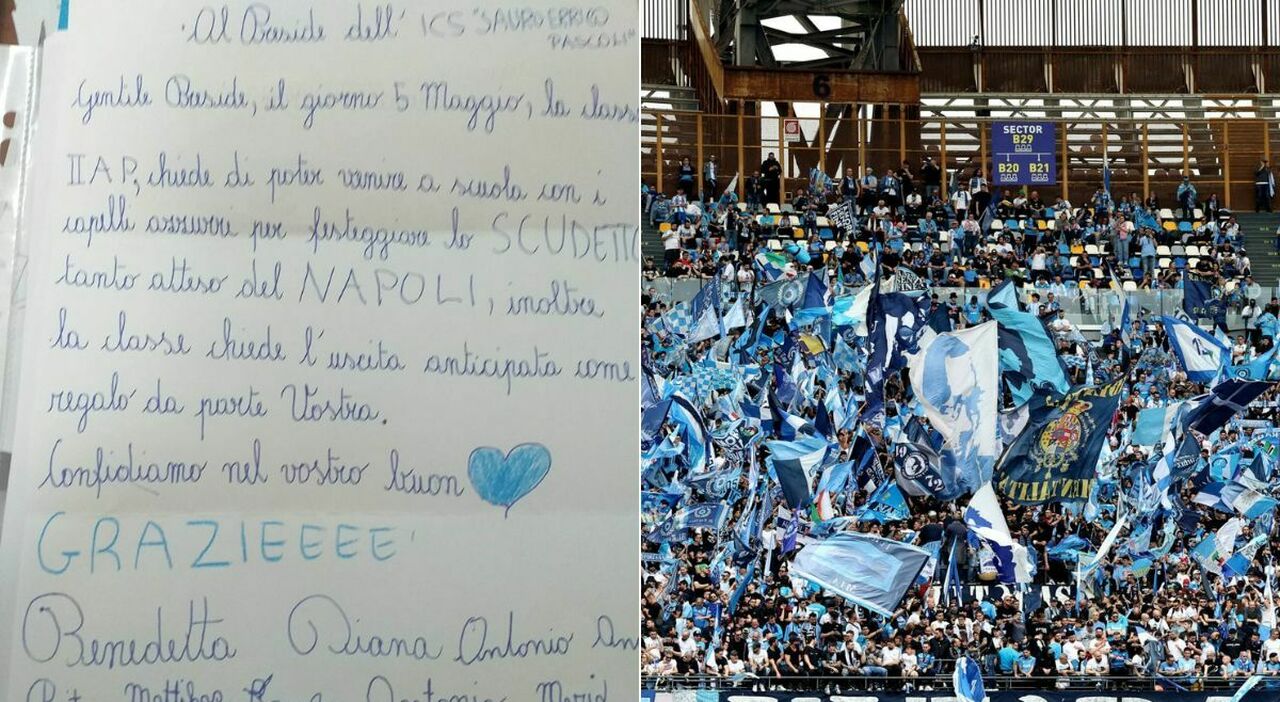 Al Preside dell' ICS "SAURO ERRICO
PASCOLI"
Gentile Preside, il giorno 5 Maggio, la class
II A P, chiede di poter venire a scuola con i
capelli azzurri per festeggiare lo SCUDETTO
tanto atteso del NAPOLI, inoltre
la classe chiede l'uscita anticipata come
regalo da parte Vostra.
Confidiamo nel vostro buon
GRAZIEEEE
Benedetta Diana Antonio An
Antonio Marid
6
SECTOR
B29
B20 B21